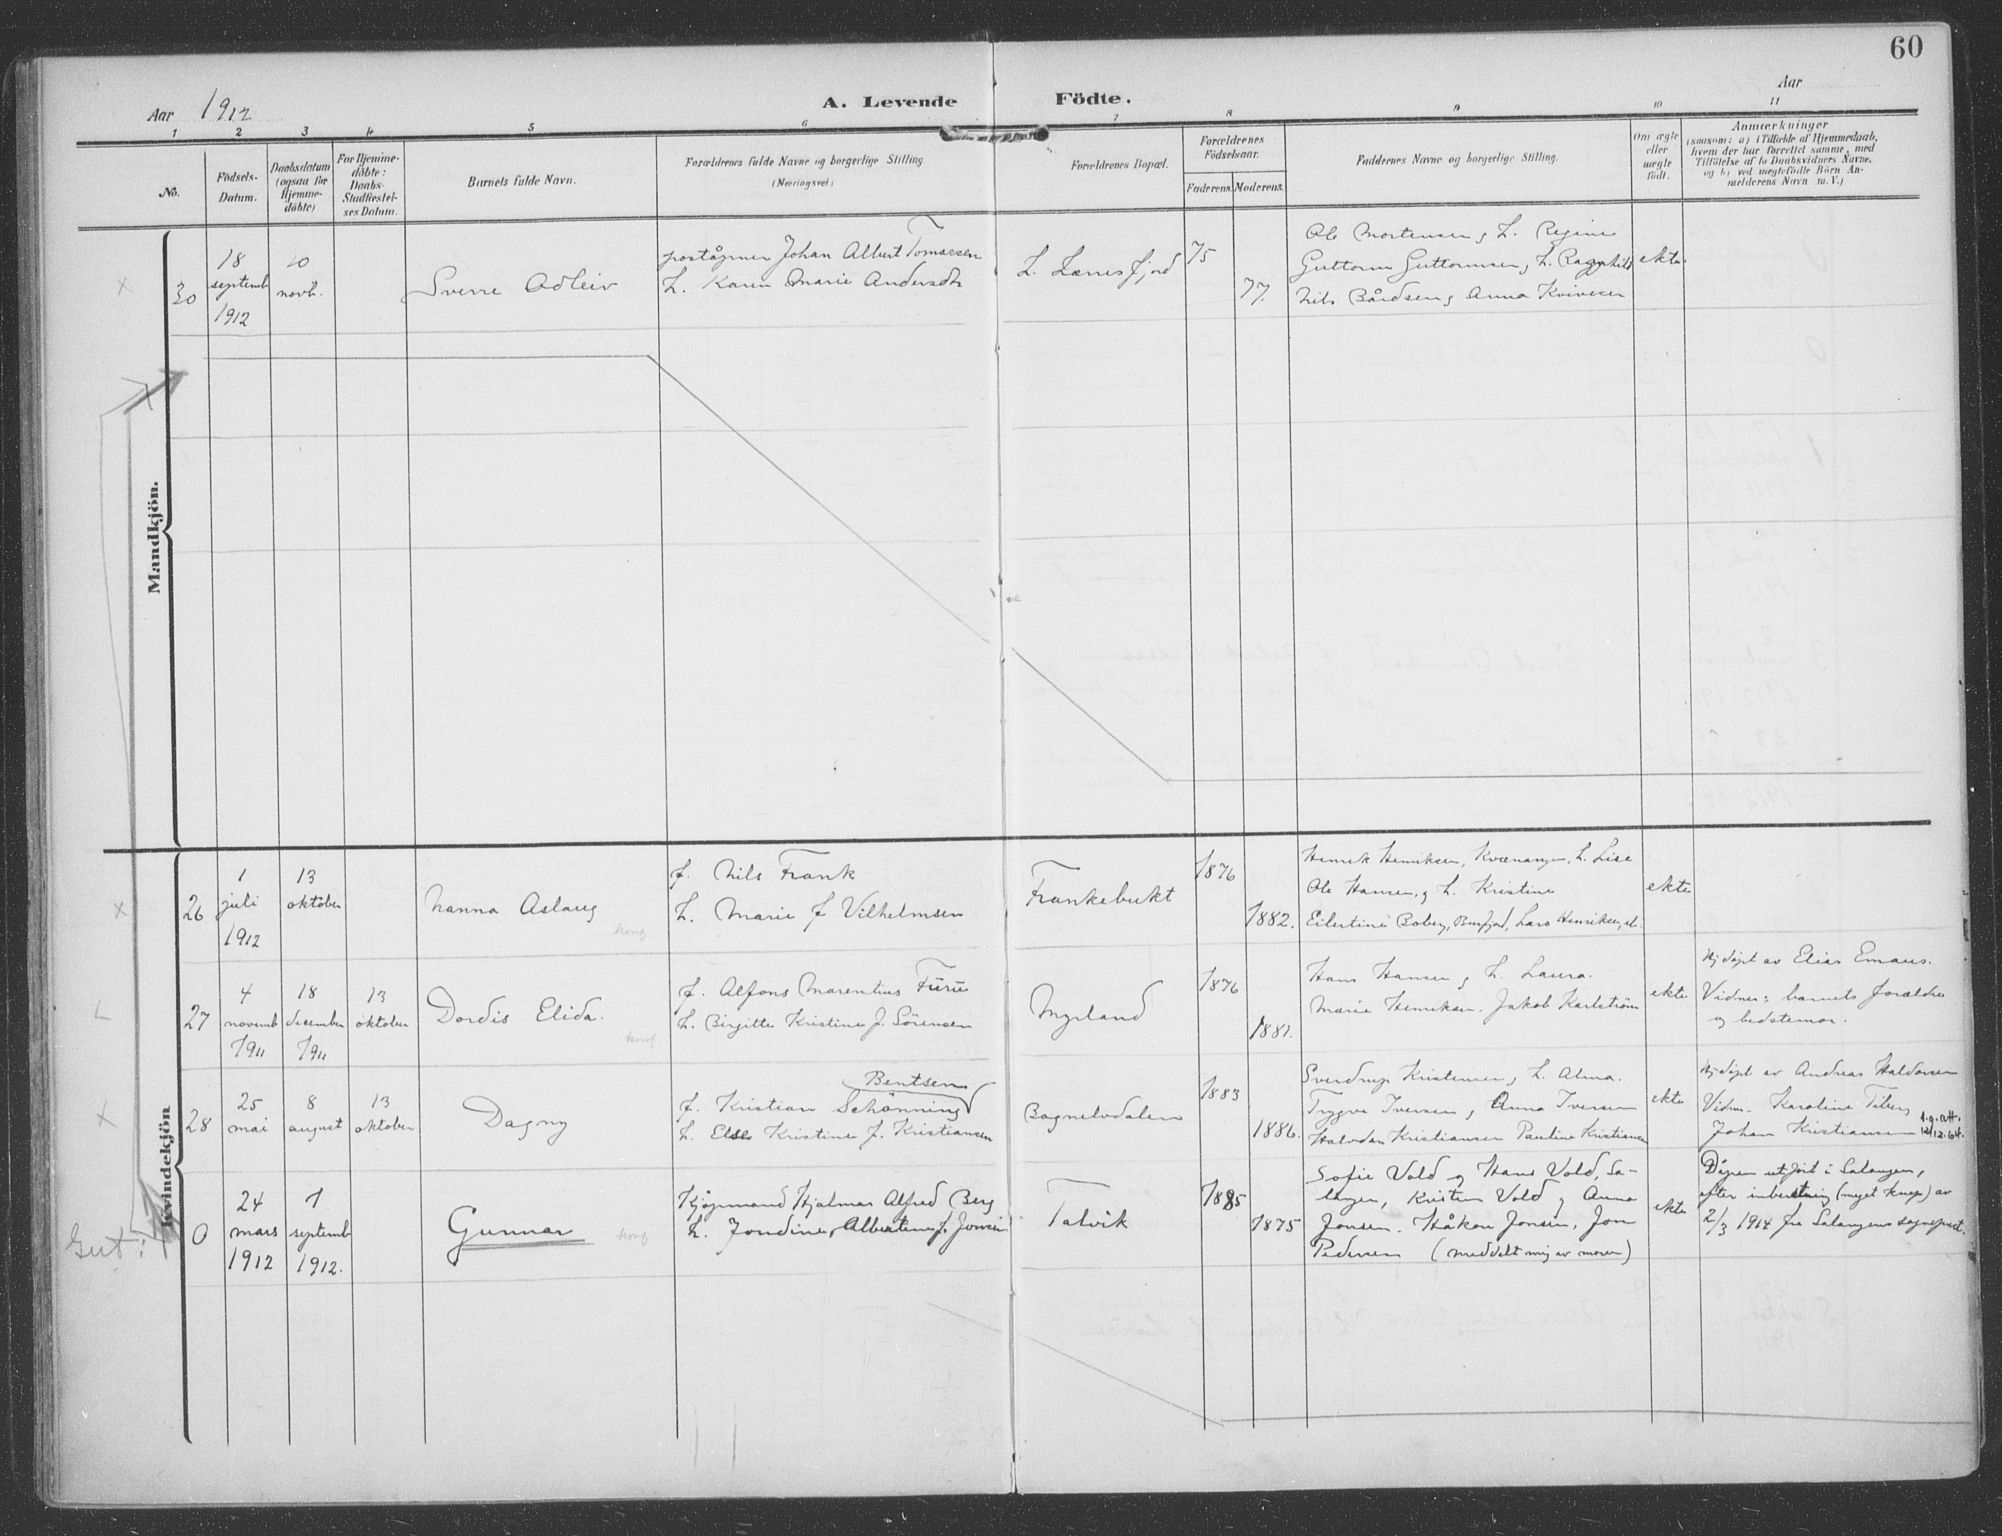 60
Aar 1912
A. Levende Födte.
Aar
1 2 3 4 5 6 7 8 9 10 11
No.
Födsels-
Datum.
Daabsdatum
(ogsaa for
Hjemme-
döbte)
For Hjemme-
döbte:
Daabs-
Stadfæstel-
ses Datum.
Barnets fulde Navn.
Forældrenes fulde Navne og borgerlige Stilling
(Næringsvei)
Forældrenes Bopæl.
Forældrenes
Födselsaar.
Faderens. Moderens.
Faddernes Navne og borgerlige Stilling.
Om ægte
eller
uægte
födt.
Anmærkninger
(saasom: a) i Tilfælde af Hjemmedaab,
hvem der har forrettet samme, med
Tilföielse af to Daabsvidners Navne.
og b) ved uægtefödte Börn An-
melderens Navn m. V.)
Mandkjön.
30
18
septemb
1912
10
novb.
Sverre Adleiv
poståpner Johan Albert Tomassen
h. Karen Marie Andersdtr
L. Lerresfjord
75
77.
Ole Mortensen, h. Regine
Guttorm Guttormsen, h. Ragnhild
Nils Bårdsen, Anna Kvivesen
ekte
Kvindekjön
26
1
juli
1912
13
oktober
Nanna Aslaug
konf
f. Nils Frank
h. Marie f Vilhelmsen
Frankebukt
1876
1882.
Henrik Henriksen, Kvænangen, h. Lise
Ole Hansen, h. Kristine
Eilertine Boberg, Burfjord, Lars Henriksen,
ekte
27
4
novemb
1911
18
december
1911
13
oktober
Dordis Elida.
konf
f. Alfons Marentius Furu
h. Birgitte Kristine f. Sörensen
Myrland
1876
1881.
Hans Hansen, h. Laura.
Marie Henriksen. Jakob Karlström
ekte
Hj døpt av Elias Emaus.
Vidner: barnets forældre
og bedstemor.
28
25
mai
8
august
13
oktober
Dagny
Bentsen
f. Kristian Schönning
h. Else Kristine f. Kristiansen
Bognelvdalen
1883
1886.
Sverdrup Kristensen, h. Alma.
Trygve Iversen, Anna Iversen
Halvdan Kristiansen Pauline Kristiansen
ekte
Hj døpt av Andreas Haldorsen
Vidn. Karoline Tiberg
Johan Kristiansen f.g.att.
12/12.64.
Gut:
0
24
mars
1912
1
septemb
1912.
Gunnar
konf
Kjøpmand Hjalmar Alfred Berg
h. Jondine Albertine f. Jonsen
Talvik
1885
1875
Sofie Vold og Hans Vold, Sa-
langen, Kristen Vold, Anna
Jonsen. Håkon Jonsen, Jon
Pedersen (meddelt mig av moren)
ekte
Dåpen utført i Salangen,
efter inberetning (meget knap) av
2/3 1914 fra Salangens sogneprest.